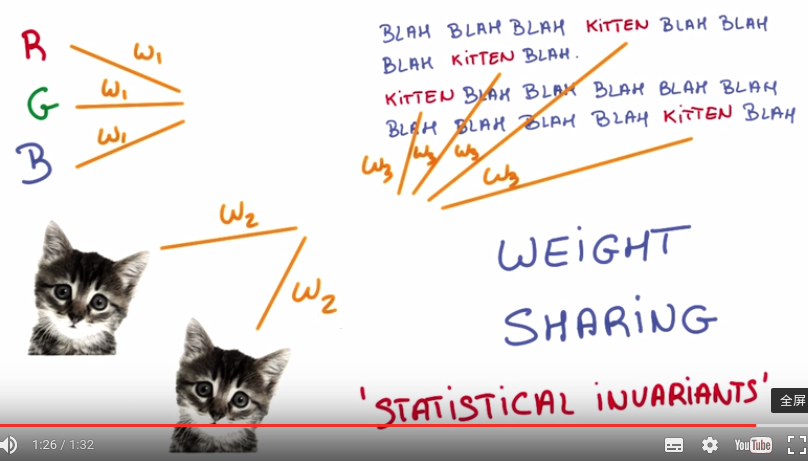 R
W1
G
W1
B
W1
BLAH BLAH BLAH KITTEN BLAH BLAH
BLAH KITTEN BLAH.
KITTEN BLAH BLAH BLAH BLAH BLAH
BLAH BLAH BLAH BLAH KITTEN BLAH
W3 W3 W3 W3
W2
W2
WEIGHT
SHARING
'STATISTICAL INVARIANTS'
全屏
1:26 / 1:32
YouTube